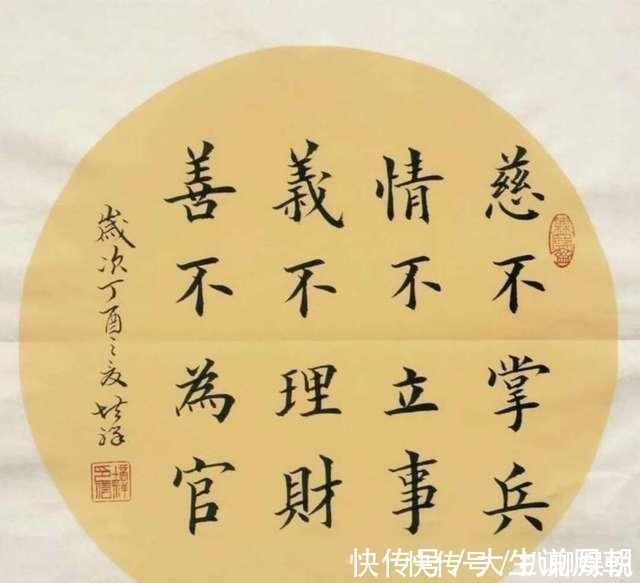 慈不掌兵
情不立事
義不理財
善不為官
歲次丁酉之夏
快传号/大